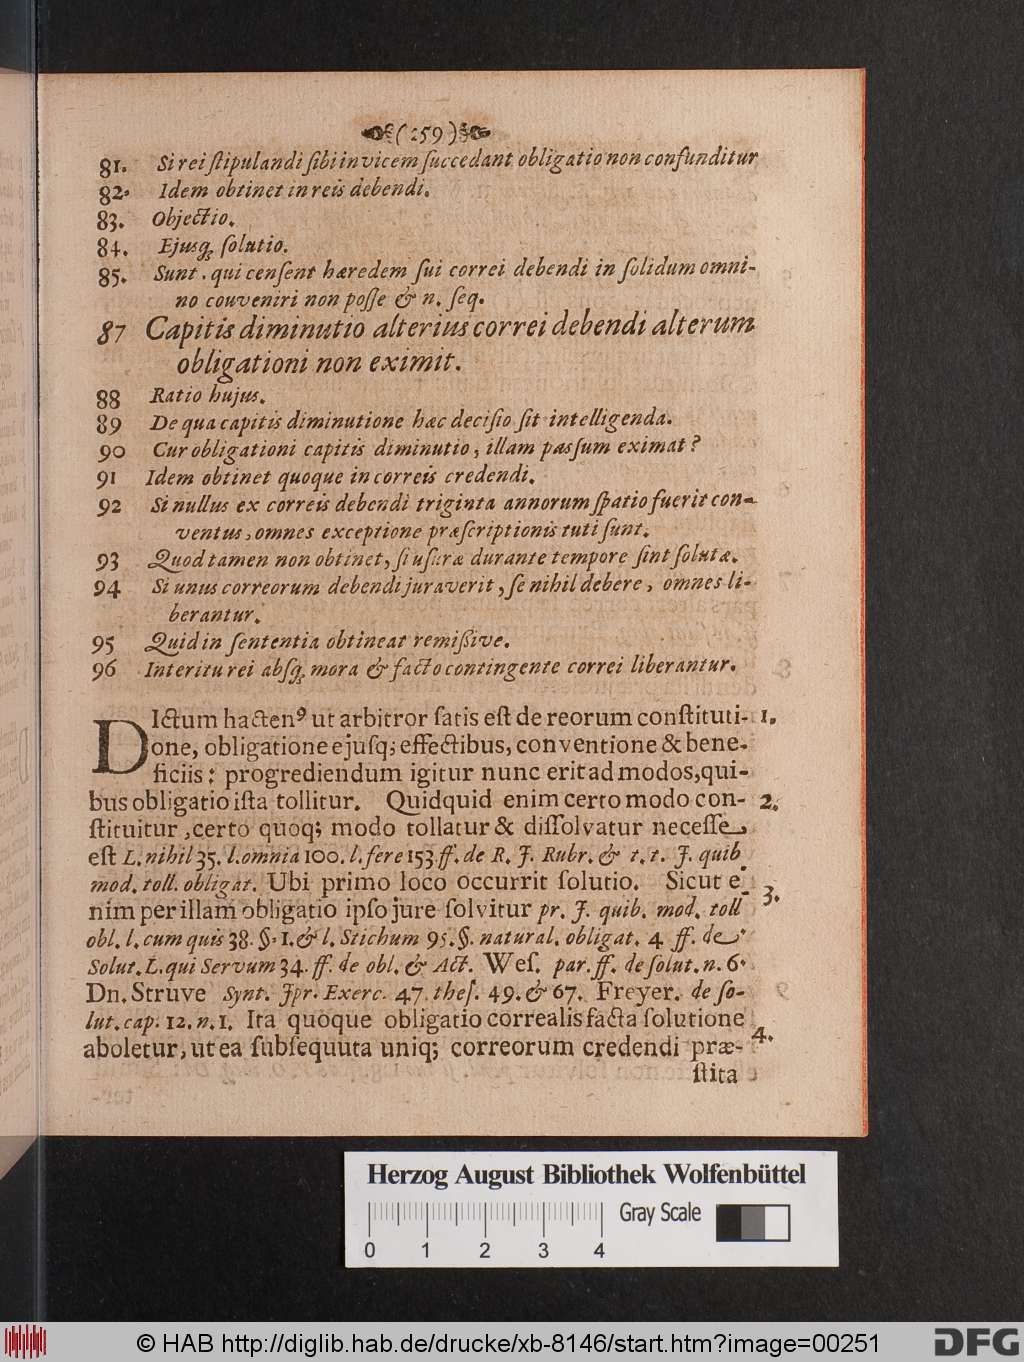 (259)
81. Si rei ſtipulandi ſibi invicem ſuccedant obligatio non confunditur
82. Idem obtinet in reis debendi.
83. Objectio.
84. Ejusq; ſolutio.
85. Sunt. qui cenſent hæredem ſui correi debendi in ſolidum omni-
no couveniri non poſſe & n. ſeq.
87 Capitis diminutio alterius correi debendi alterum
obligationi non eximit.
88 Ratio hujus.
89 De qua capitis diminutione hæc deciſio ſit intelligenda.
90 Cur obligationi capitis diminutio, illam paſſum eximat?
91 Idem obtinet quoque in correis credendi.
92 Si nullus ex correis debendi triginta annorum ſpatio fuerit con-
ventus, omnes exceptione præſcriptionis tuti ſunt.
93 Quod tamen non obtinet, ſi uſuræ durante tempore ſint ſolutæ.
94 Si unus correorum debendi juraverit, ſe nihil debere, omnes li-
berantur.
95 Quid in ſententia obtineat remiſſive.
96 Interitu rei abſq; mora & facto contingente correi liberantur.
DIctum hactenꝰ ut arbitror ſatis eſt de reorum conſtituti- 1.
one, obligatione ejuſq; effectibus, conventione & bene-
ficiis: progrediendum igitur nunc erit ad modos, qui-
bus obligatio iſta tollitur. Quidquid enim certo modo con- 2.
ſtituitur, certo quoq; modo tollatur & diſſolvatur neceſſe
eſt L. nihil 35. l. omnia 100. l. fere 153. ff. de R. J. Rubr. & t. t. J. quib.
mod. toll. obligat. Ubi primo loco occurrit ſolutio. Sicut e-
nim per illam obligatio ipſo jure ſolvitur pr. J. quib. mod. toll 3.
obl. l. cum quis 38. §. 1. & l. Stichum 95. §. natural. obligat. 4 ff. de
Solut. L. qui Servum 34. ff. de obl. & Act. Weſ. par. ff. de ſolut. n. 6.
Dn. Struve Synt. Jpr. Exerc. 47. theſ. 49. & 67. Freyer. de ſo-
lut. cap. 12. n. 1. Ita quoque obligatio correalis facta ſolutione
aboletur, ut ea ſubſequuta uniq; correorum credendi præ- 4.
ſtita
Herzog August Bibliothek Wolfenbüttel
Gray Scale
0 1 2 3 4
© HAB http://diglib.hab.de/drucke/xb-8146/start.htm?image=00251
DFG